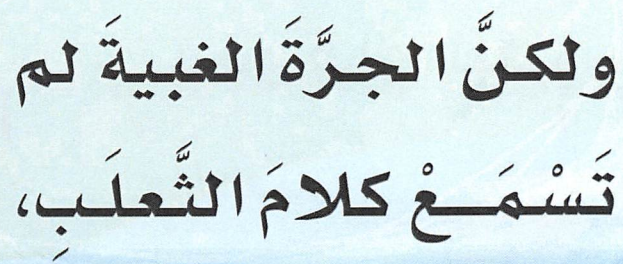 ولكنَّ الجرَّةَ الغبيةَ لم
تَسْمَعْ كلامَ الثَّعلَبِ،